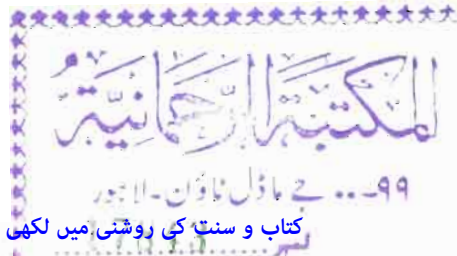 المكتبة الرحمانية
۹۹... جے ماڈل ٹاؤن - لاہور
کتاب و سنت کی روشنی میں لکھی
نمبر